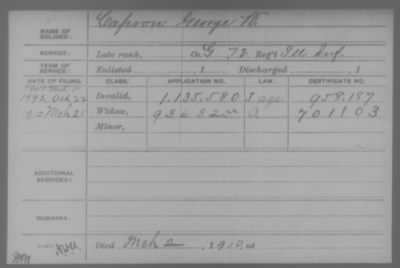 NAME OF SOLDIER: Capron George W.
SERVICE: Late rank, Co. G 72 Reg't Ill Inf.
TERM OF SERVICE: Enlisted , 1 Discharged , 1
DATE OF FILING. CLASS. APPLICATION NO. LAW. CERTIFICATE NO.
1892, Oct, 22 Invalid, 1.135.580 958.187
1910 Mch 21 Widow, 936323 701103
Minor,
ADDITIONAL SERVICES:
REMARKS:
Died Mch 2 , 1910, at